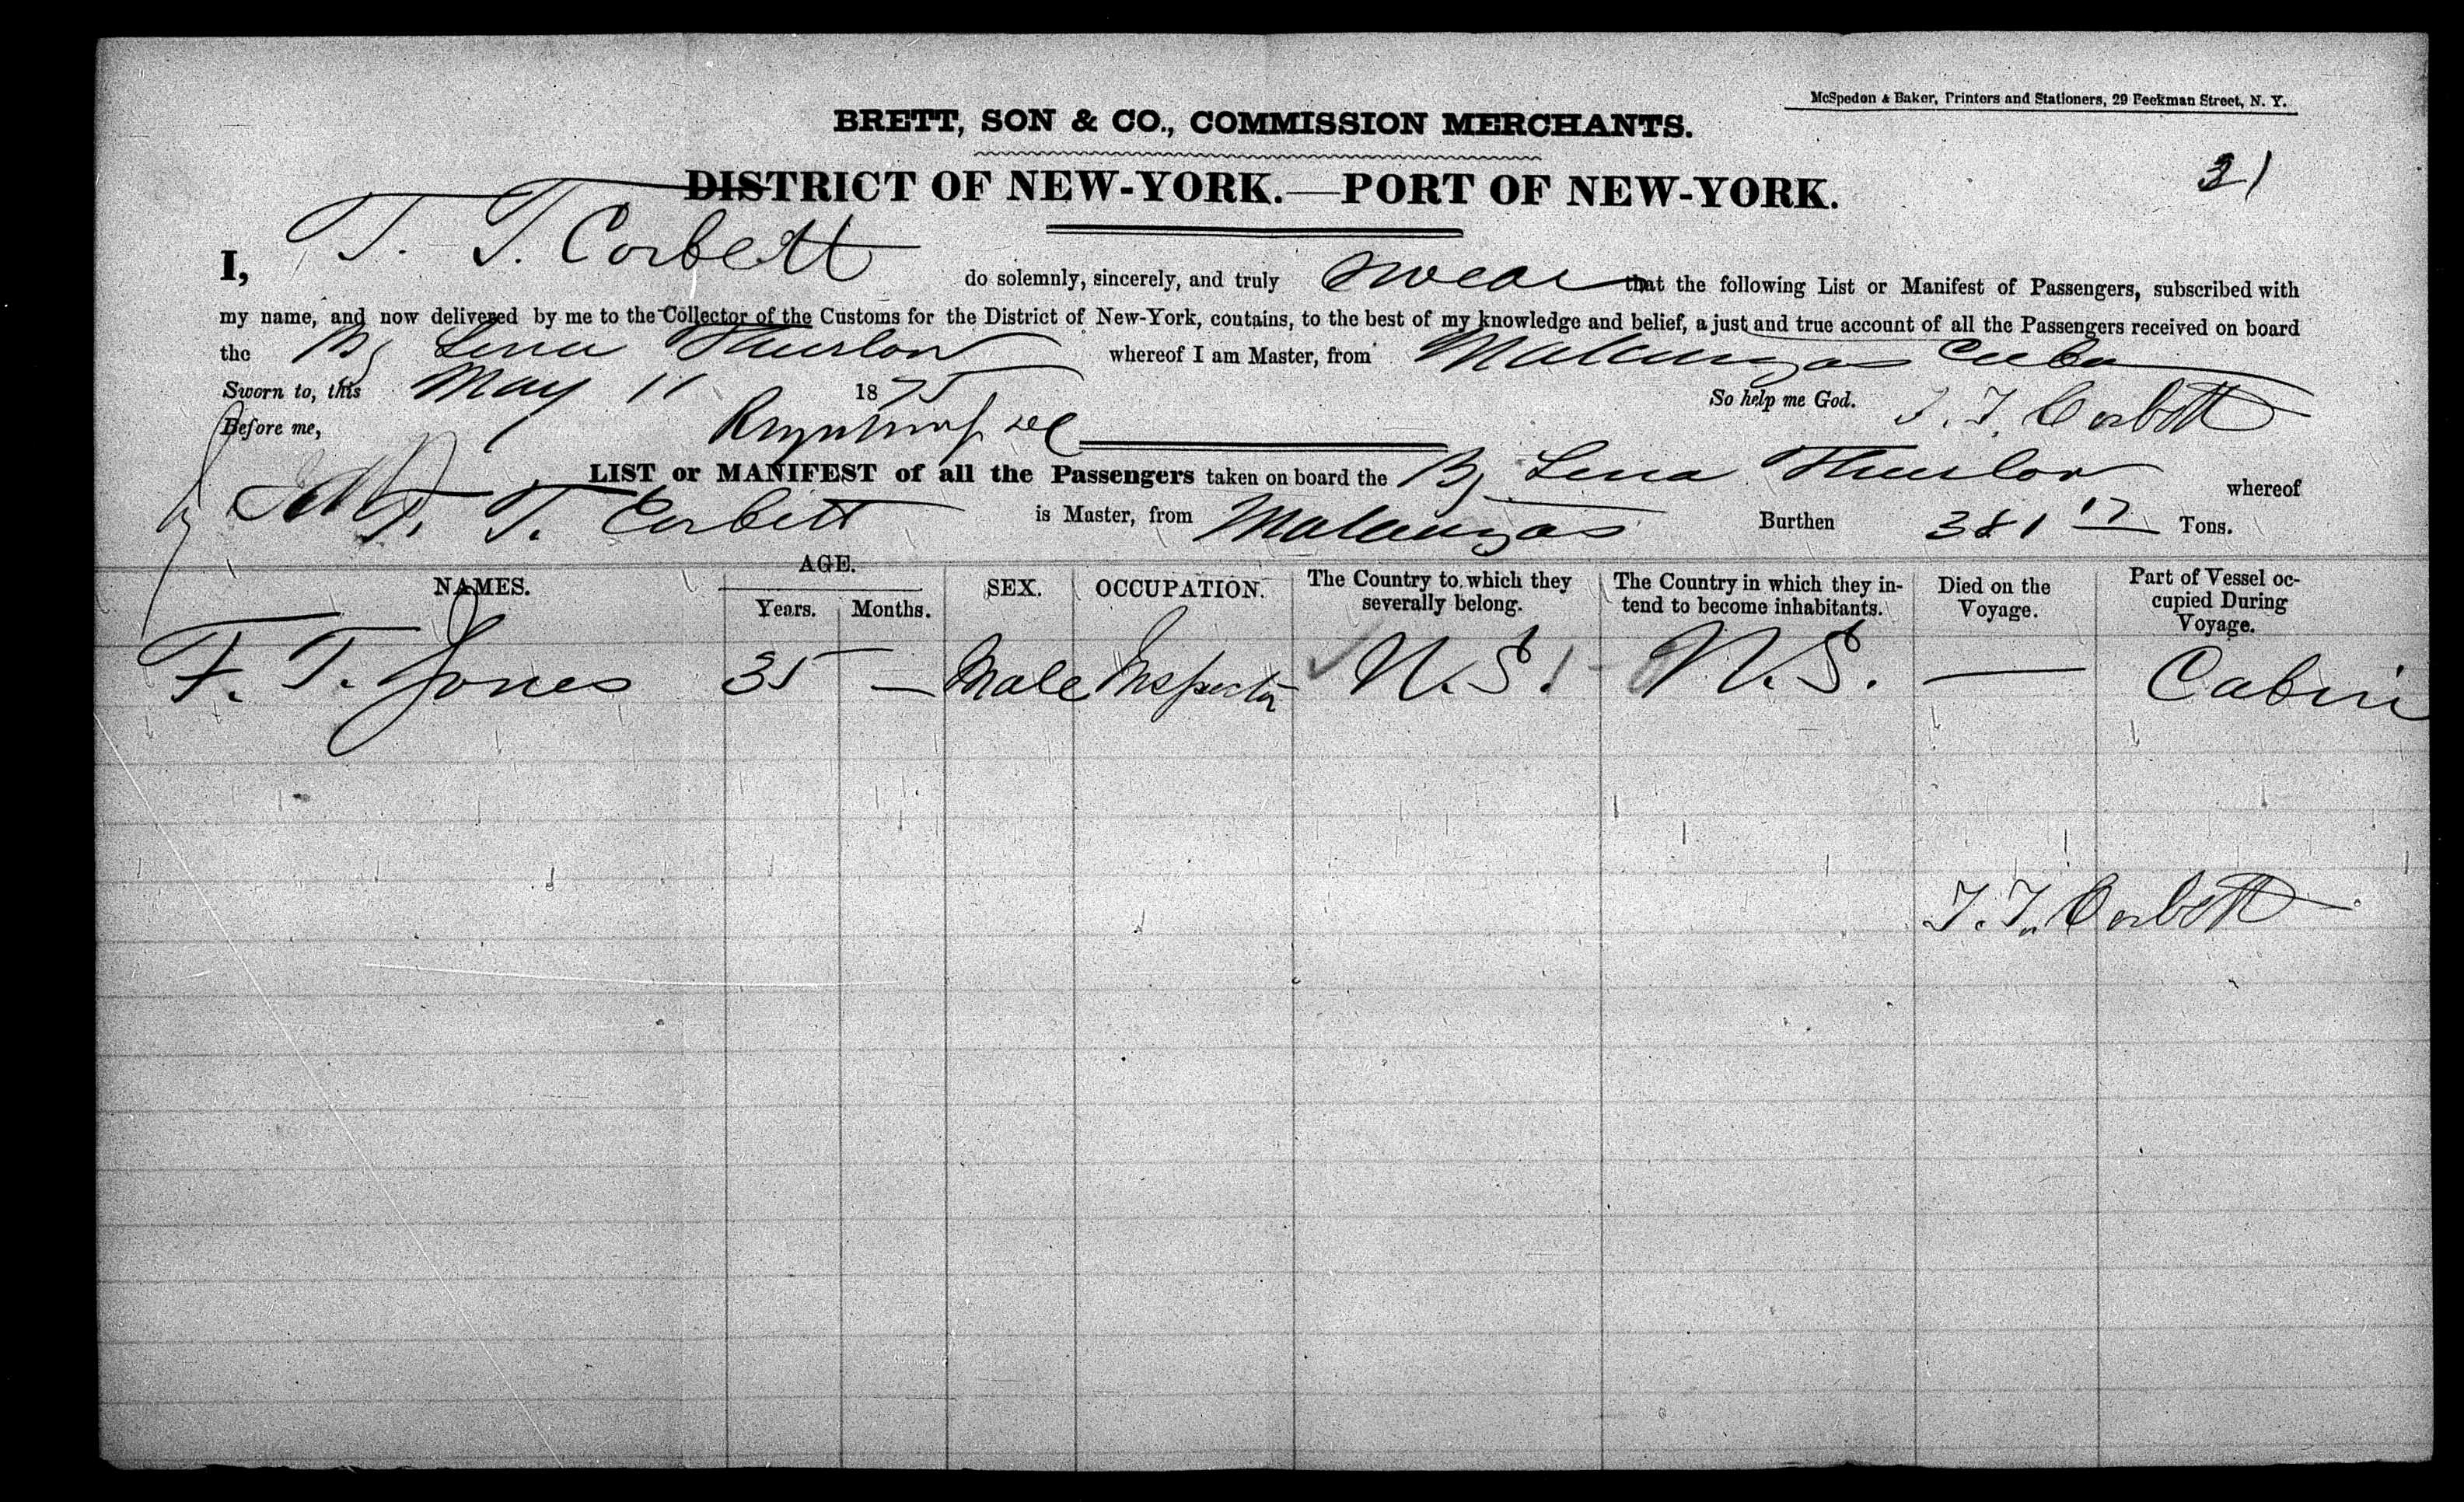 McSpedon & Baker, Printers and Stationers, 29 Beekman Street, N. Y.
BRETT, SON & CO., COMMISSION MERCHANTS.
DISTRICT OF NEW-YORK.—PORT OF NEW-YORK.
31
I, T. T. Corbett do solemnly, sincerely, and truly swear that the following List or Manifest of Passengers, subscribed with
my name, and now delivered by me to the Collector of the Customs for the District of New-York, contains, to the best of my knowledge and belief, a just and true account of all the Passengers received on board
the Bg Lena Thurlow whereof I am Master, from Matanzas Cuba
Sworn to, this May 11 1875 So help me God. T. T. Corbett
Before me,
LIST or MANIFEST of all the Passengers taken on board the Bg Lena Thurlow whereof
T. T. Corbett is Master, from Matanzas Burthen 381 17 Tons.
NAMES. AGE. Years. Months. SEX. OCCUPATION. The Country to which they severally belong. The Country in which they intend to become inhabitants. Died on the Voyage. Part of Vessel occupied During Voyage.
F. T. Jones 35 — Male Inspector U.S. U.S. — Cabin
T. T. Corbett